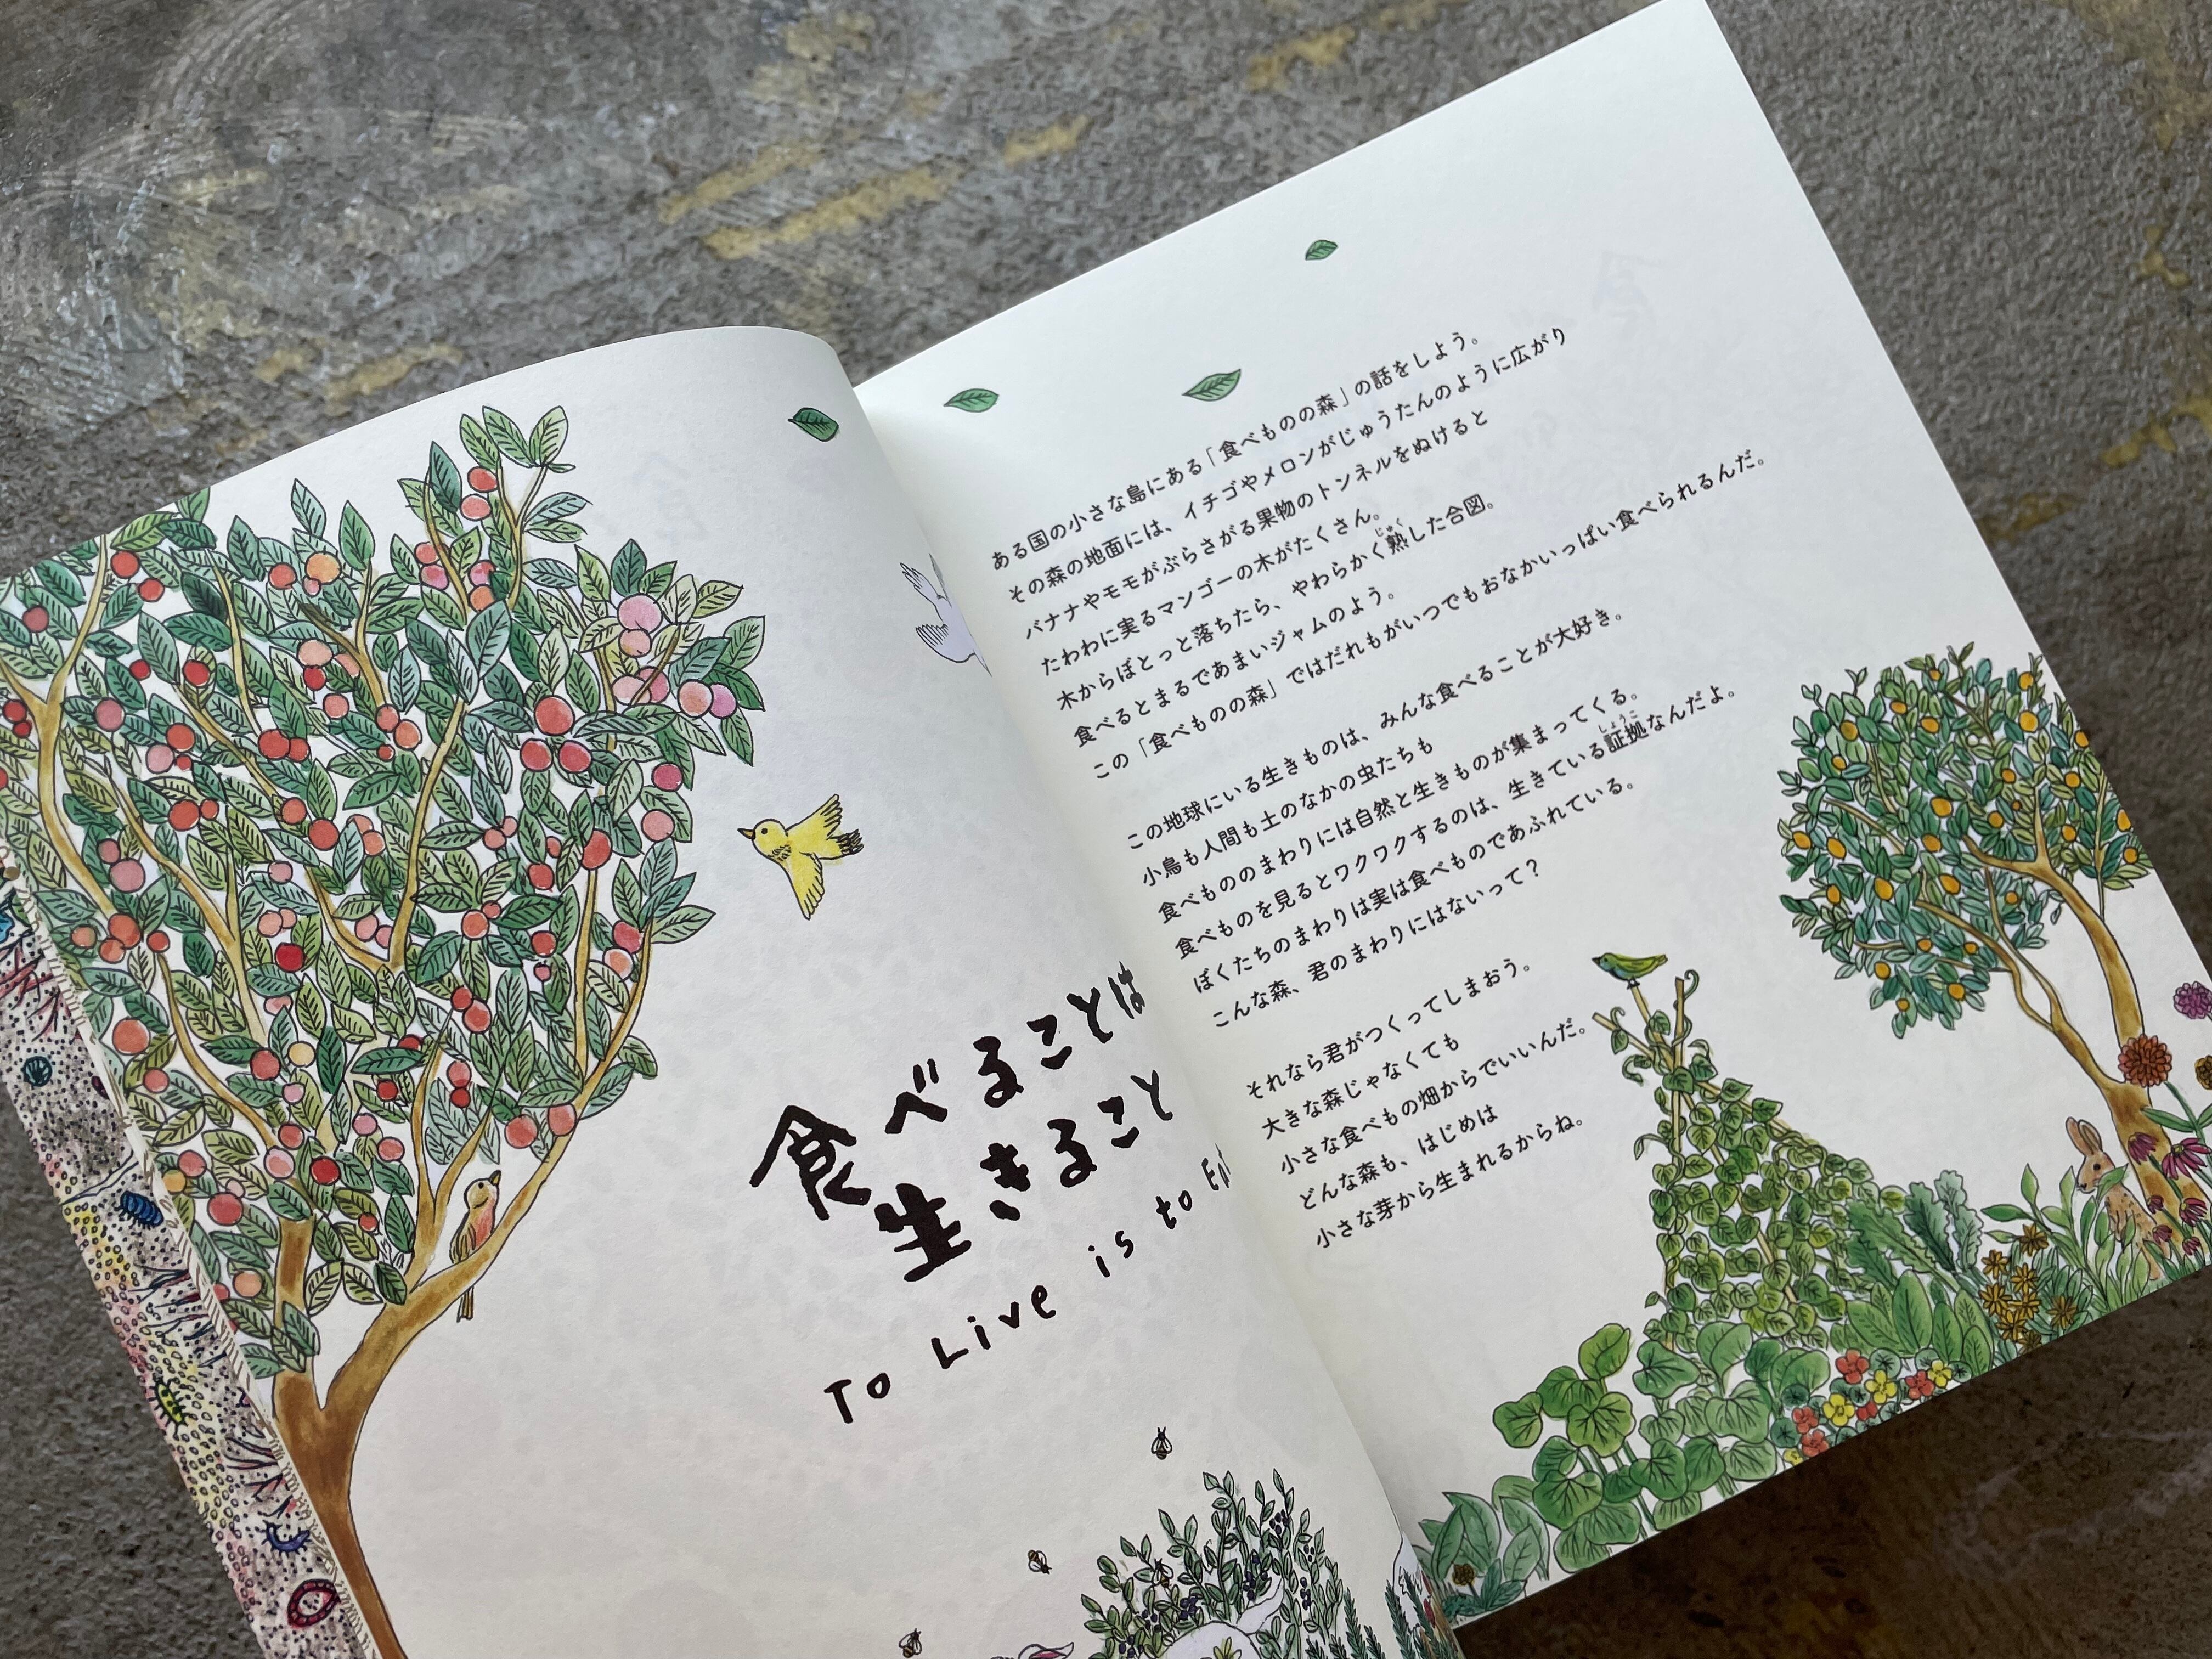 食べることは
生きること
To Live is to
ある国の小さな島にある「食べものの森」の話をしよう。
その森の地面には、イチゴやメロンがじゅうたんのように広がり
バナナやモモがぶらさがる果物のトンネルをぬけると
たわわに実るマンゴーの木がたくさん。
木からぼとっと落ちたら、やわらかく熟した合図。
食べるとまるであまいジャムのよう。
この「食べものの森」ではだれもがいつでもおなかいっぱい食べられるんだ。
この地球にいる生きものは、みんな食べることが大好き。
小鳥も人間も土のなかの虫たちも
食べもののまわりには自然と生きものが集まってくる。
食べものを見るとワクワクするのは、生きている証拠なんだよ。
ぼくたちのまわりは実は食べものであふれている。
こんな森、君のまわりにはないって？
それなら君がつくってしまおう。
大きな森じゃなくても
小さな食べもの畑からでいいんだ。
どんな森も、はじめは
小さな芽から生まれるからね。